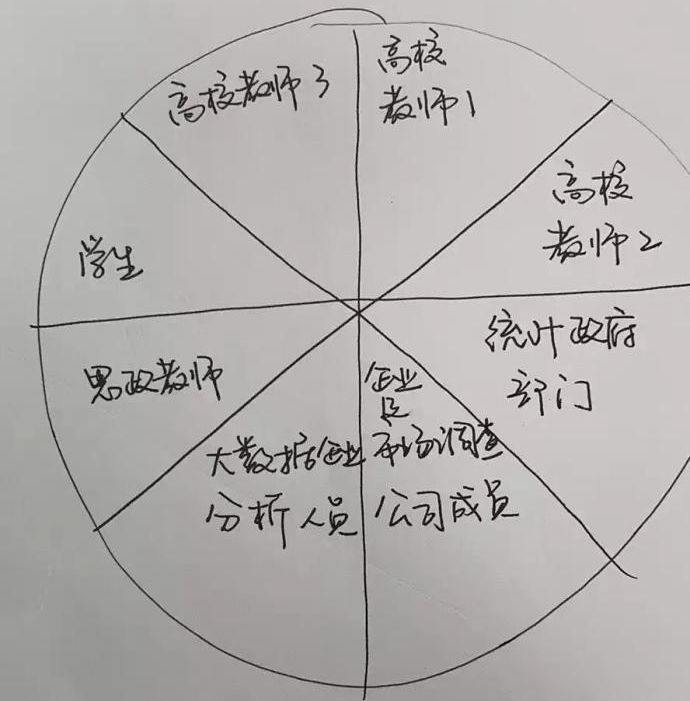 高校教师3
高校
教师1
高校
教师2
学生
统计政府
部门
思政教师
企业
大数据企业
分析人员
市场调查
公司成员